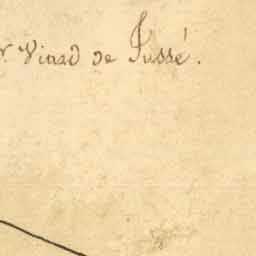 r. Vivad de Jussé.